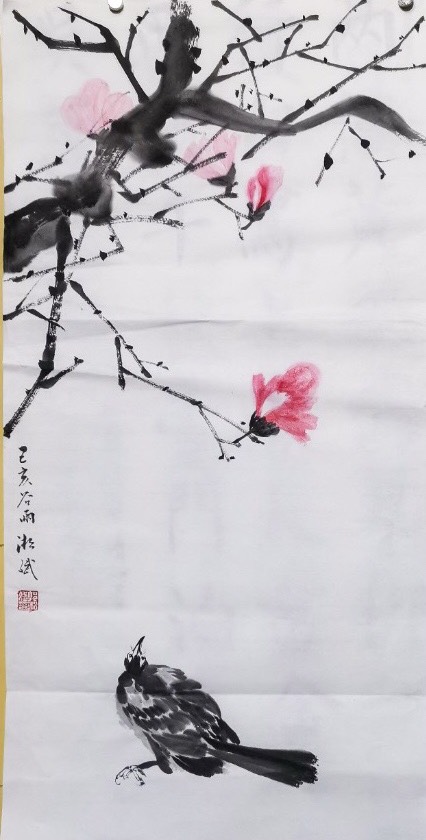 己亥谷雨湘斌